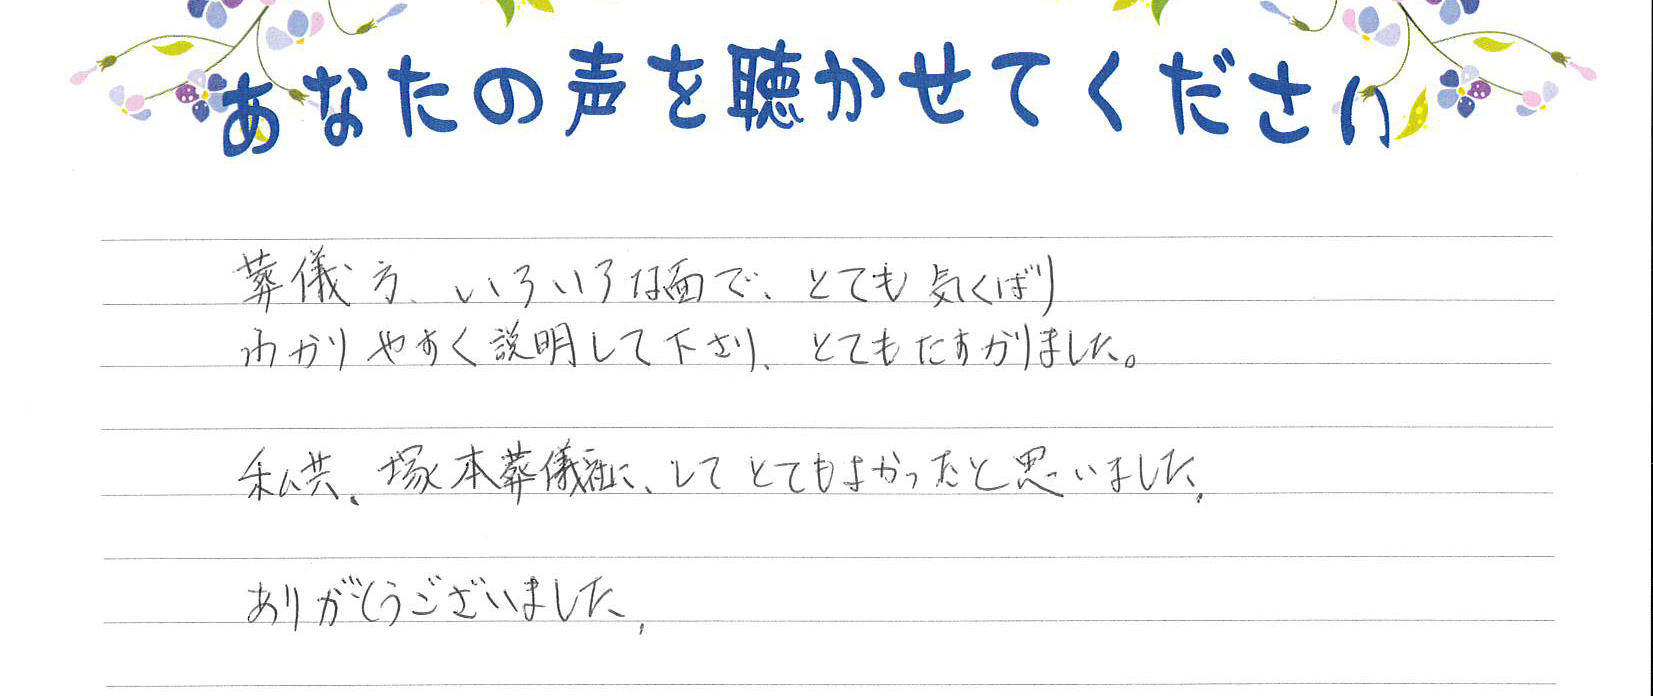 あなたの声を聴かせてください
葬儀方、いろいろな面で、とても気くばり
わかりやすく説明して下さり、とてもたすかりました。
私共、塚本葬儀社に、してとてもよかったと思いました、
ありがとうございました、